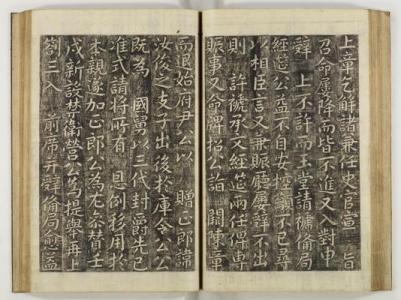 上章乞解諸兼任史官宣 旨
召命屢降而皆不進又入對申
辭 上不許而玉堂請褫備局
經筵公益不自安控籲不已尋
以相臣言又兼賑廳屢辭不出
則 許褫承文經筵兩任俾專
賑事又命牌招公詣 闕陳章
而退始府尹公以 贈正郎諱
汝後之支子出後於庫令公公
既為 國舅以三代封爵先已
准式請將所有 恩例移用於
本親遂加正郎公為左參贊壬
戌新設禁衛營公為提舉再上
劄三入 前席并辭備局愈益